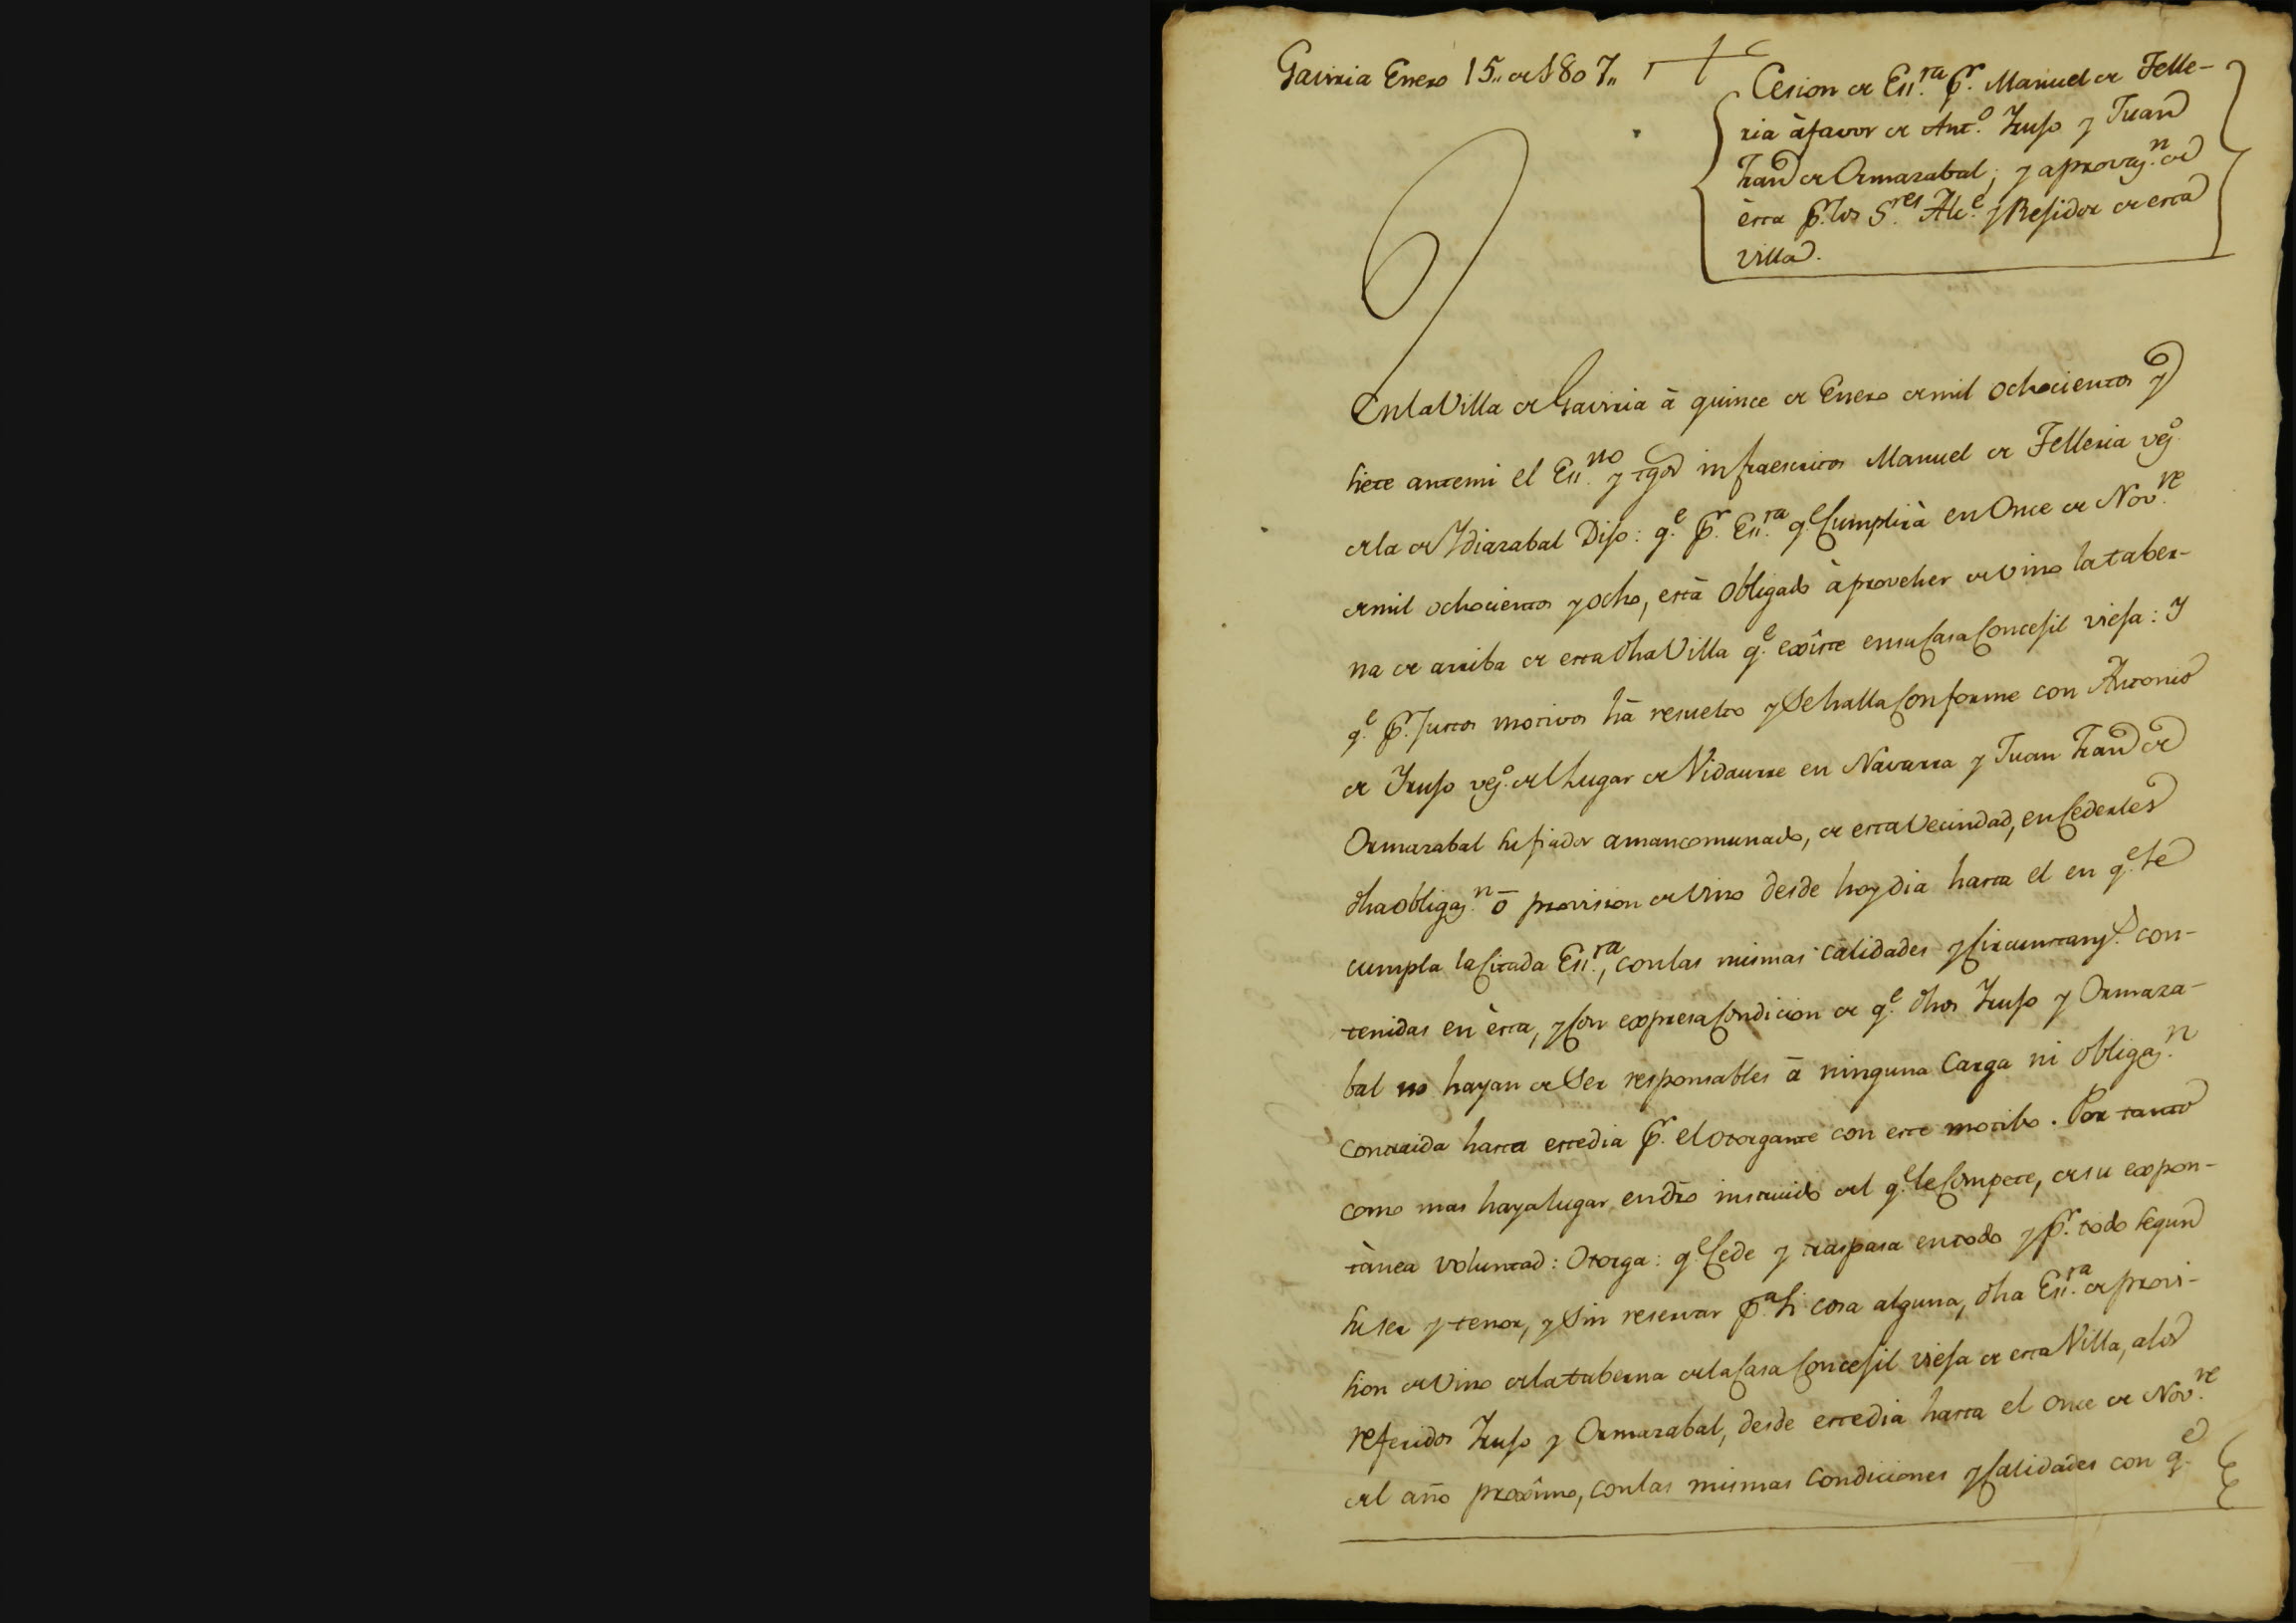 Gaviria Enero 15,, de 1807,,
Cesion de Ess.ra p.r Manuel de Telle-
ria à favor de Ant.o Iruso y Juan
Fran.co de Ormazabal; y aprovaz.n de
èsta p.r los S.res Alc.e y Rejidor de esta
villa.
En la Villa de Gaviria à quince de Enero de mil ochocientos y
siete antemi el Ess.no y tgos infraescritos Manuel de Telleria vez.o
de la de Ydiazabal Dijo: q.e p.r Ess.ra q.e Cumplirà en Once de Nov.re
de mil ochocientos y ocho, està Obligado à proveher de vino la taber-
na de arriba de esta dha Villa q.e exîste en su Casa Concejil vieja: Y
q.e p.r Justos motivos hà resuelto y Se halla Conforme con Antonio
de Iruso vez.o del Lugar de Vidaurre en Navarra y Juan Fran.co de
Ormazabal su fiador amancomunado, de esta Vecindad, en Cederles
dha obligaz.n ō provision de Vino desde hoy dia hasta el en q.e se
cumpla la Citada Ess.ra, con las mismas calidades y Circunstanz.s con-
tenidas en èsta, y Con expresa Condicion de q.e dhos Iruso y Ormaza-
bal no hayan de Ser responsables à ninguna Carga ni Obligaz.n
contraida hasta este dia p.r el otorgante con este motibo. Por tanto
como mas haya lugar en dro instruido del q.e le Compete, de su expon-
tànea voluntad: Otorga: q.e Cede y traspasa en todo y p.r todo segun
su ser y tenor, y Sin reservar p.a Si cosa alguna, dha Ess.ra de provi-
sion de Vino de la taberna de la Casa Concejil vieja de esta Villa, a los
referidos Iruso y Ormazabal, desde este dia hasta el Once de Nov.re
del año proxîmo, con las mismas condiciones y Calidades con q.e